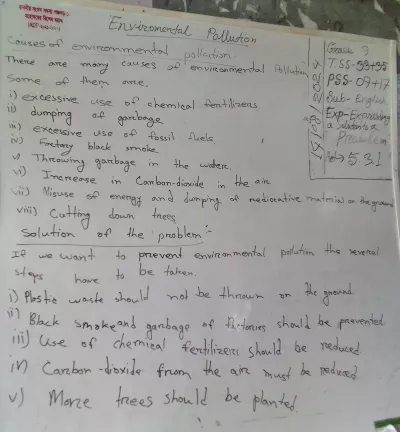 Environmental Pollution
Causes of environmental pollution
There are many causes of environmental Pollution
Some of them are.
i) excessive use of chemical fertilizers
ii) dumping of garbage
iii) excessive use of fossil fuels
iv) Factory black smoke
v) Throwing garbage in the water.
vi) Increase in Carbon-dioxide in the air
vii) Misuse of energy and dumping of on the ground
viii) Cutting down trees
Solution of the problem:-
If we want to prevent environmental pollution the several
steps have to be taken.
i) Plastic waste should not be thrown on the ground
ii) Black smoke and garbage of factories should be prevented
iii) Use of chemical fertilizers should be reduced
iv) Carbon-dioxide from the air must be reduced
v) More trees should be planted.
Grade 9
TSS-
PSS- 07+17
Sub- English
Exp-
Problem
Id→531